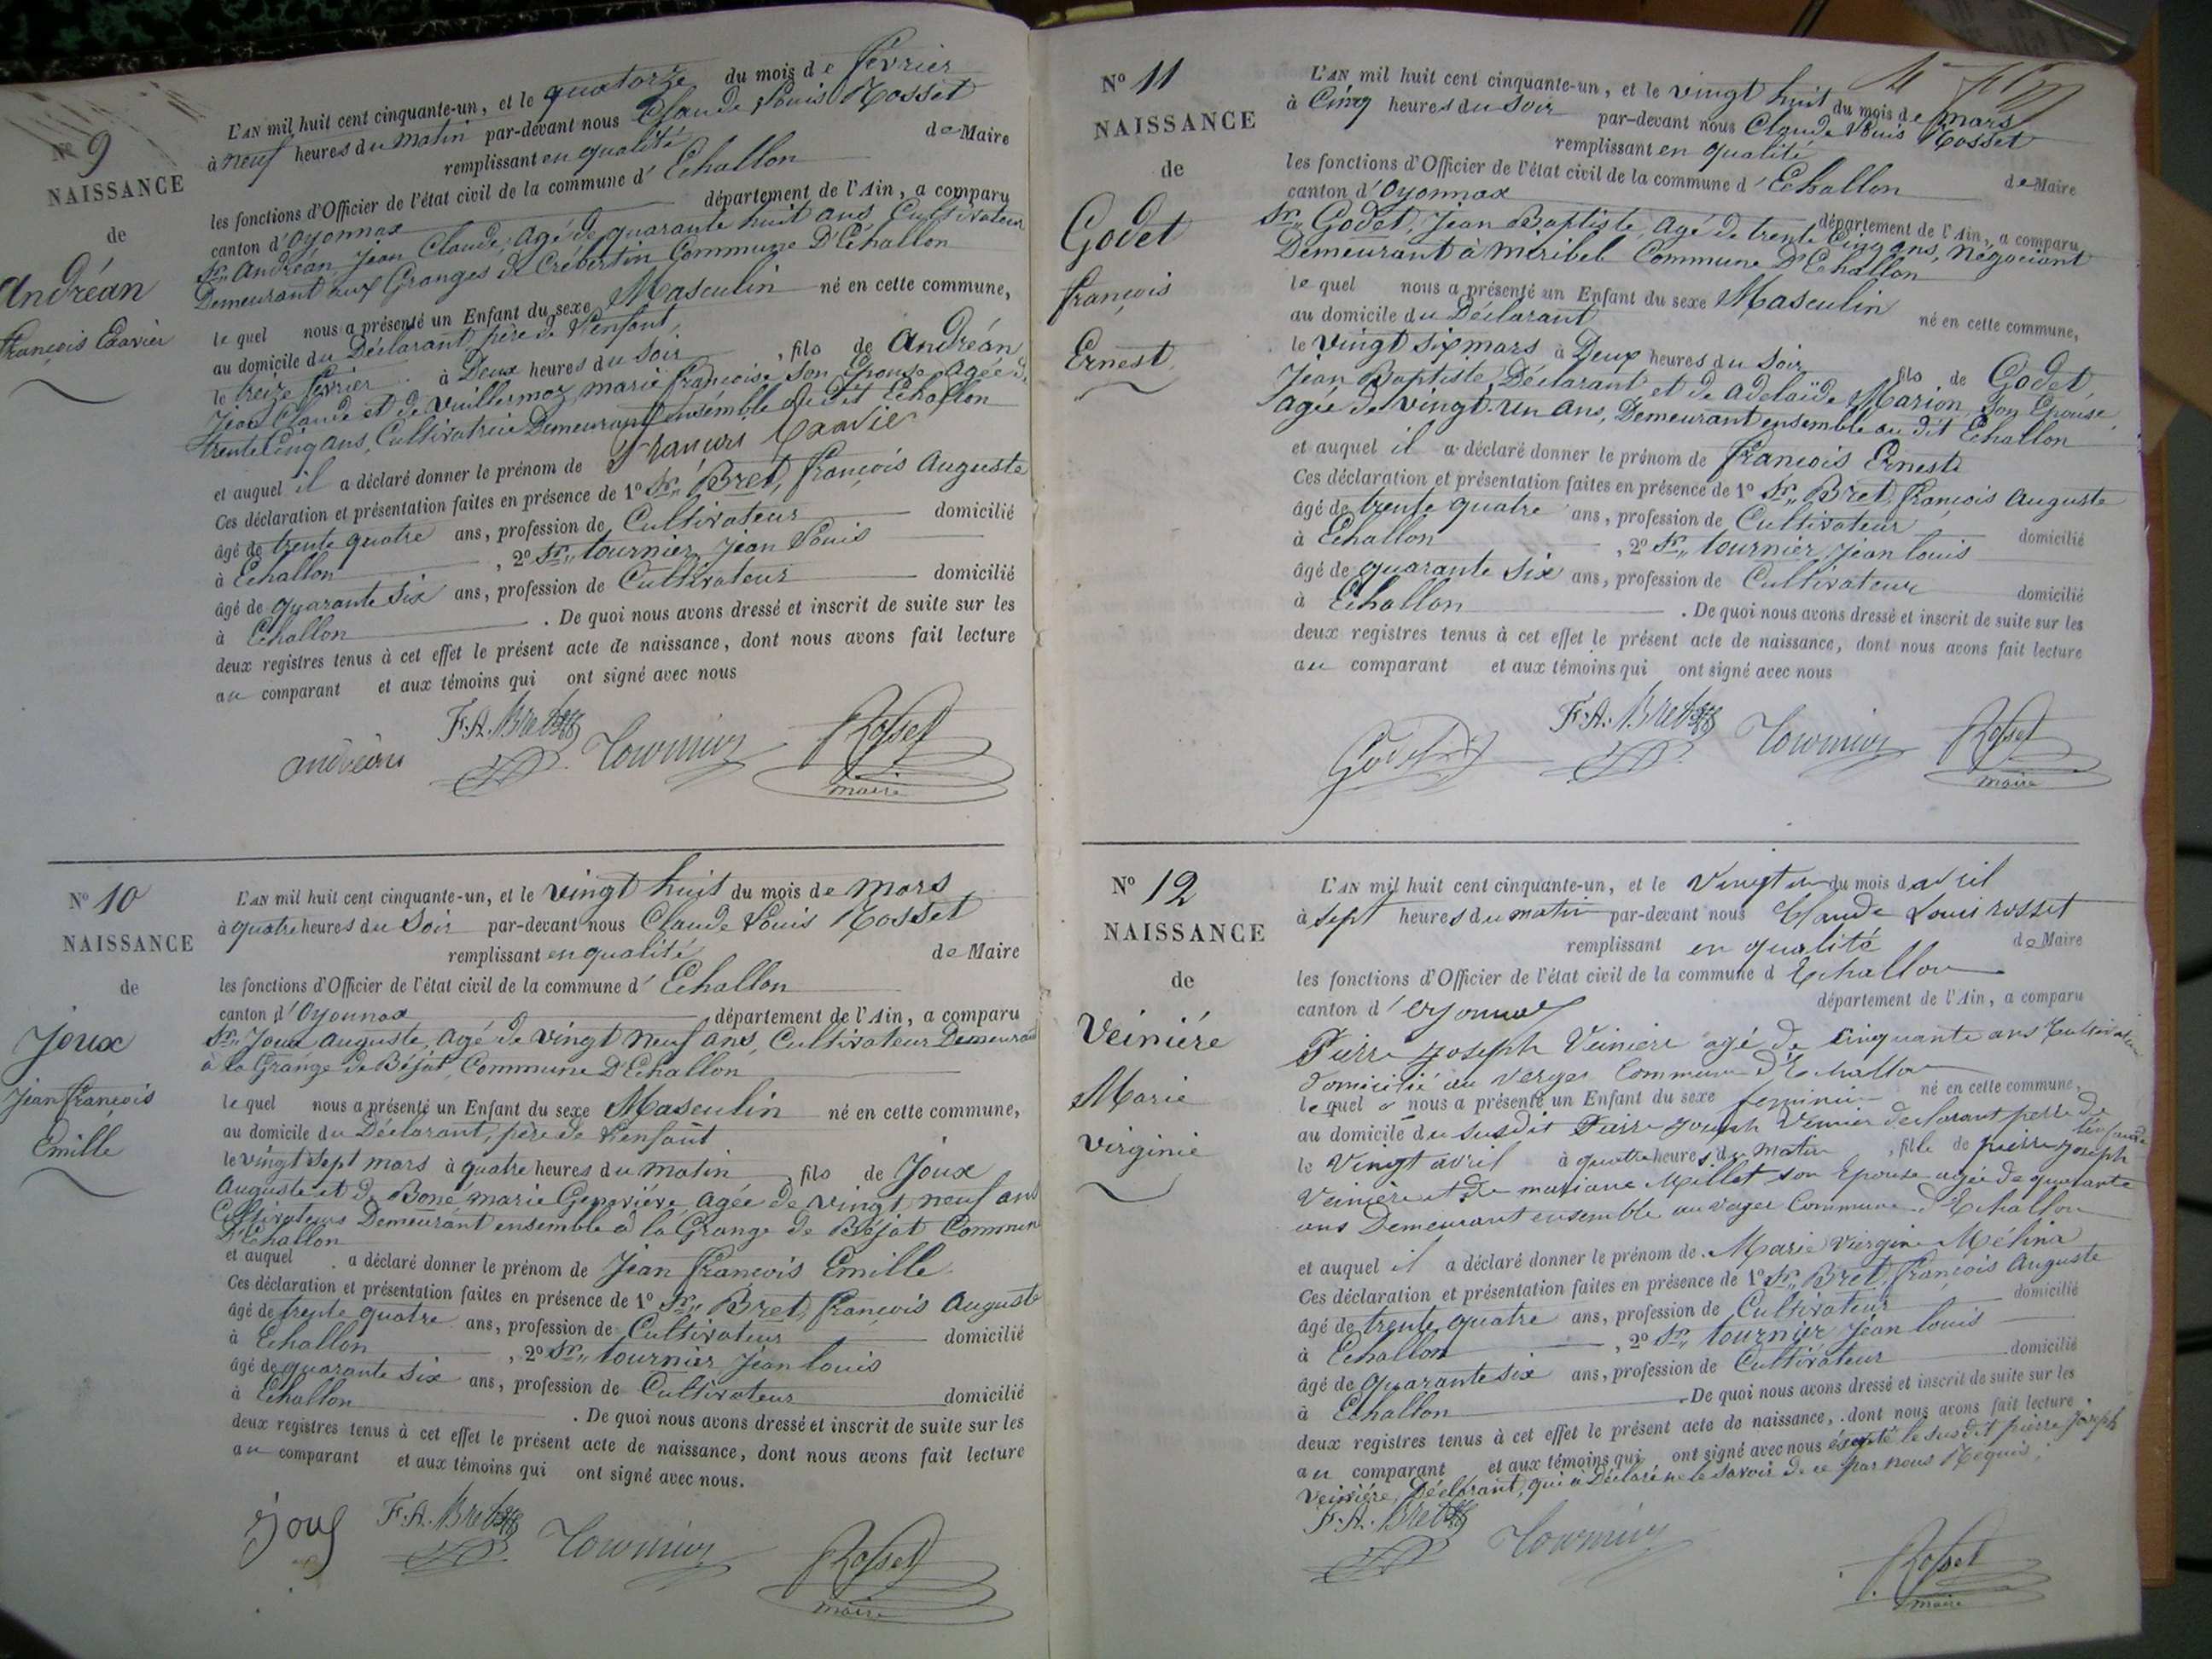 N° 9
NAISSANCE
de
Andréan
François Exavier
L'AN mil huit cent cinquante-un, et le quatorze du mois de février
à neuf heures du matin par-devant nous Claude Louis Rosset
remplissant en qualité de Maire
les fonctions d'Officier de l'état civil de la commune d' Echallon
canton d'Oyonnax département de l'Ain, a comparu
Sr. Andréan, Jean Claude, Agé de quarante huit ans, Cultivateur
Demeurant aux Granges de Crébertin Commune D'Echallon
lequel nous a présenté un Enfant du sexe Masculin né en cette commune,
au domicile du Déclarant père de l'enfant,
le treize février à Deux heures du Soir, fils de Andréan
Jean Claude et de Vuillermoz, marie françoise Son Epouse Agée de
trente Cinq ans, Cultivatrice Demeurant ensemble au dit Echallon
et auquel il a déclaré donner le prénom de François Exavie
Ces déclaration et présentation faites en présence de 1° Sr. Bret, françois Auguste
âgé de trente quatre ans, profession de Cultivateur domicilié
à Echallon, 2° Sr. tournier, Jean Louis
âgé de quarante six ans, profession de Cultivateur domicilié
à Echallon. De quoi nous avons dressé et inscrit de suite sur les
deux registres tenus à cet effet le présent acte de naissance, dont nous avons fait lecture
au comparant et aux témoins qui ont signé avec nous
andréan F.A. Bret Tournier Rosset
maire
N° 10
NAISSANCE
de
Joux
Jean françois
Emille
L'AN mil huit cent cinquante-un, et le vingt huit du mois de mars
à quatre heures du Soir par-devant nous Claude Louis Rosset
remplissant en qualité de Maire
les fonctions d'Officier de l'état civil de la commune d' Echallon
canton d'Oyonnax département de l'Ain, a comparu
Sr. Joux Auguste, Agé de vingt neuf ans, Cultivateur Demeurant
à la Grange de Béjat, Commune D'Echallon
lequel nous a présenté un Enfant du sexe Masculin né en cette commune,
au domicile du Déclarant, père de l'enfant
le vingt sept mars à quatre heures du matin, fils de Joux
Auguste et de Boné marie Geneviève, Agée de vingt neuf ans
Cultivateurs Demeurant ensemble à la Grange de Béjat Commune
D'Echallon
et auquel a déclaré donner le prénom de Jean françois Emille
Ces déclaration et présentation faites en présence de 1° Sr. Bret, françois Auguste
âgé de trente quatre ans, profession de Cultivateur domicilié
à Echallon, 2° Sr. tournier Jean louis
âgé de quarante six ans, profession de Cultivateur domicilié
à Echallon. De quoi nous avons dressé et inscrit de suite sur les
deux registres tenus à cet effet le présent acte de naissance, dont nous avons fait lecture
au comparant et aux témoins qui ont signé avec nous.
joux F.A. Bret Tournier Rosset
maire
N° 11
NAISSANCE
de
Godet
françois
Ernest
L'AN mil huit cent cinquante-un, et le vingt huit du mois de mars
à Cinq heures du Soir par-devant nous Claude Louis Rosset
remplissant en qualité de Maire
les fonctions d'Officier de l'état civil de la commune d' Echallon
canton d'Oyonnax département de l'Ain, a comparu
Sr. Godet, Jean Baptiste, Agé de trente Cinq ans, Négociant
Demeurant à Miribel Commune D'Echallon
lequel nous a présenté un Enfant du sexe Masculin né en cette commune,
au domicile du Déclarant
le vingt six mars à Deux heures du Soir fils de Godet
Jean Baptiste, Déclarant et de Adelaïde Marion, Son Epouse,
Agée de vingt-un Ans, Demeurant ensemble au dit Echallon
et auquel il a déclaré donner le prénom de françois Ernest
Ces déclaration et présentation faites en présence de 1° Sr. Bret, françois Auguste
âgé de trente quatre ans, profession de Cultivateur domicilié
à Echallon, 2° Sr. tournier, Jean louis
âgé de quarante six ans, profession de Cultivateur domicilié
à Echallon. De quoi nous avons dressé et inscrit de suite sur les
deux registres tenus à cet effet le présent acte de naissance, dont nous avons fait lecture
au comparant et aux témoins qui ont signé avec nous
Godet F.A. Bret Tournier Rosset
maire
N° 12
NAISSANCE
de
Veiniére
Marie
virginie
L'AN mil huit cent cinquante-un, et le Vingt un du mois d avril
à sept heures du matin par-devant nous Claude Louis rosset
remplissant en qualité de Maire
les fonctions d'Officier de l'état civil de la commune d Echallon
canton d' oyonnax département de l'Ain, a comparu
Pierre joseph Veiniere agé de cinquante ans Cultivateur
domicilié au verger Commune d'Echallon
lequel a nous a présenté un Enfant du sexe feminin né en cette commune,
au domicile du susdit Pierre joseph Veinier declarant perre de l'enfant
le Vingt avril à quatre heures du matin, fille de pierre joseph
Veinière et de mariane Millet son Epouse agée de quarante
ans Demeurant ensemble au verger Commune d'Echallon
et auquel il a déclaré donner le prénom de Marie Viergine Mélina
Ces déclaration et présentation faites en présence de 1° Sr. Bret, françois Auguste
âgé de trente quatre ans, profession de Cultivateur domicilié
à Echallon, 2° Sr. tournier Jean louis
âgé de quarante six ans, profession de Cultivateur domicilié
à Echallon. De quoi nous avons dressé et inscrit de suite sur les
deux registres tenus à cet effet le présent acte de naissance, dont nous avons fait lecture
au comparant et aux témoins qui ont signé avec nous éxepté le susdit pierre Joseph
Veiniére, Déclarant, qui a Déclaré ne le savoir de ce par nous Requis.
F.A. Bret Tournier Rosset
maire